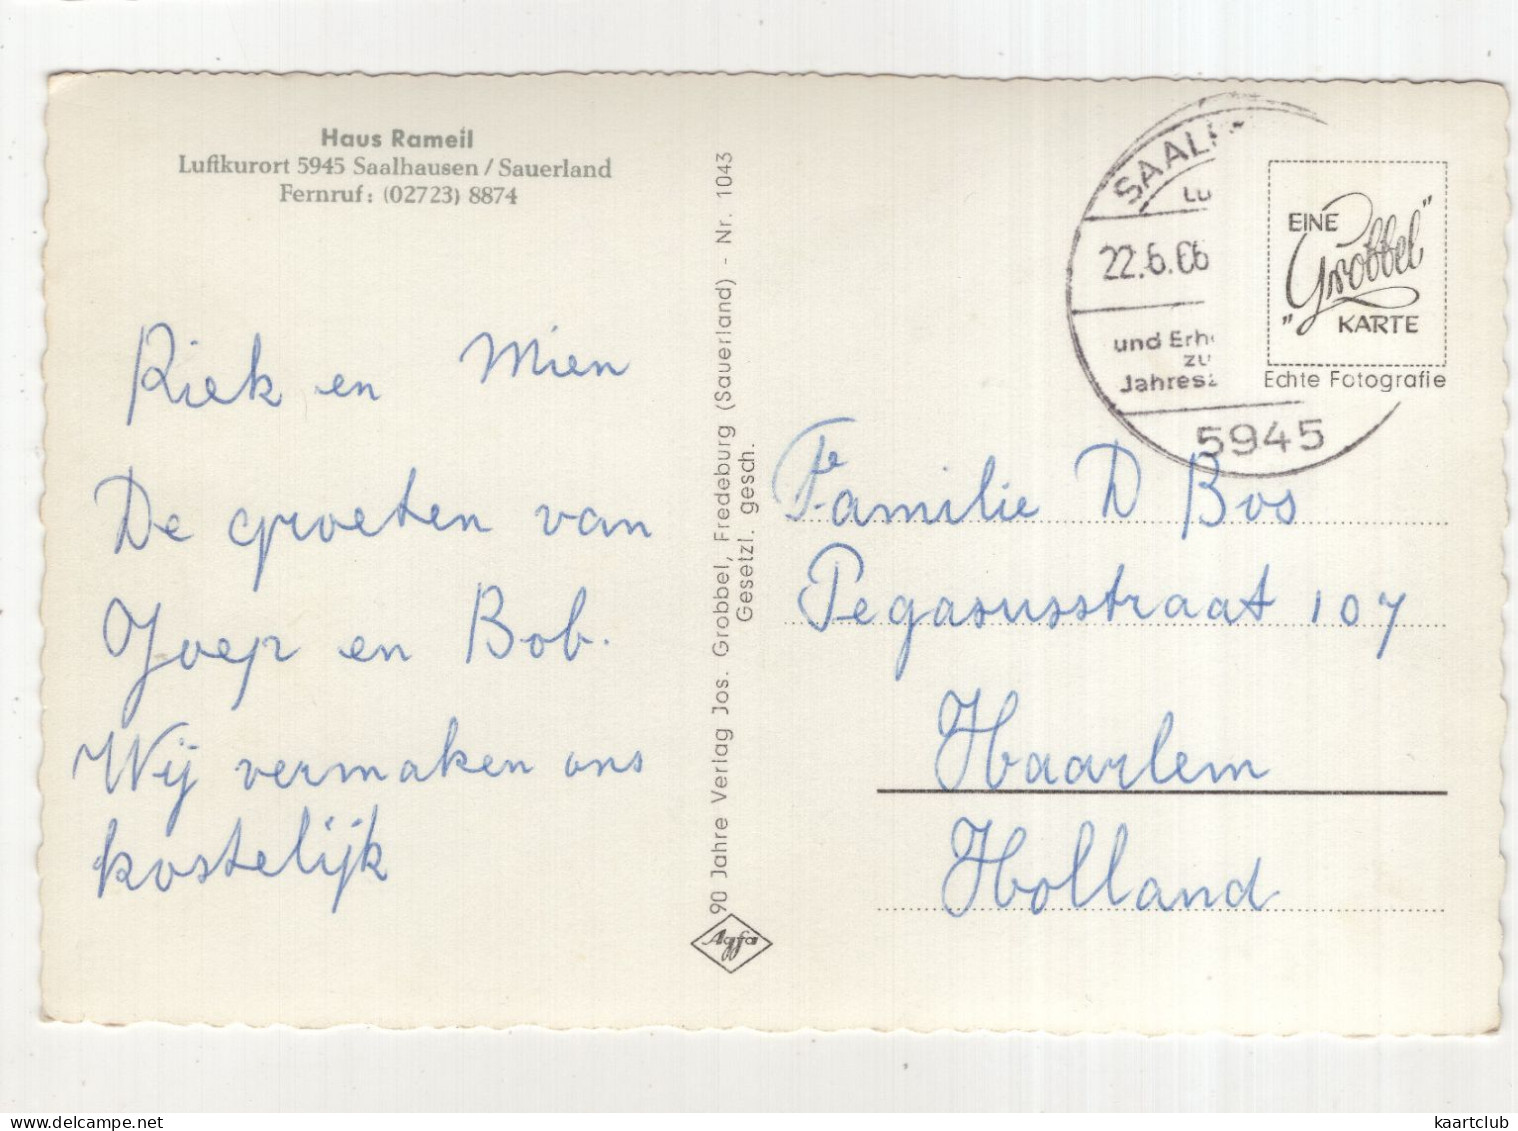 Haus Rameil
Luftkurort 5945 Saalhausen / Sauerland
Fernruf: (02723) 8874
Riek en Mien
De groeten van
Joep en Bob.
Wij vermaken ons
kostelijk
90 Jahre Verlag Jos. Grobbel, Fredeburg (Sauerland) - Nr. 1043
Gesetzl. gesch.
Agfa
22.6.66
und Erh
zu
Jahresz
5945
EINE
"Grobbel"
KARTE
Echte Fotografie
Familie D Bos
Pegasusstraat 107
Haarlem
Holland
kaartclub
delcampe.net